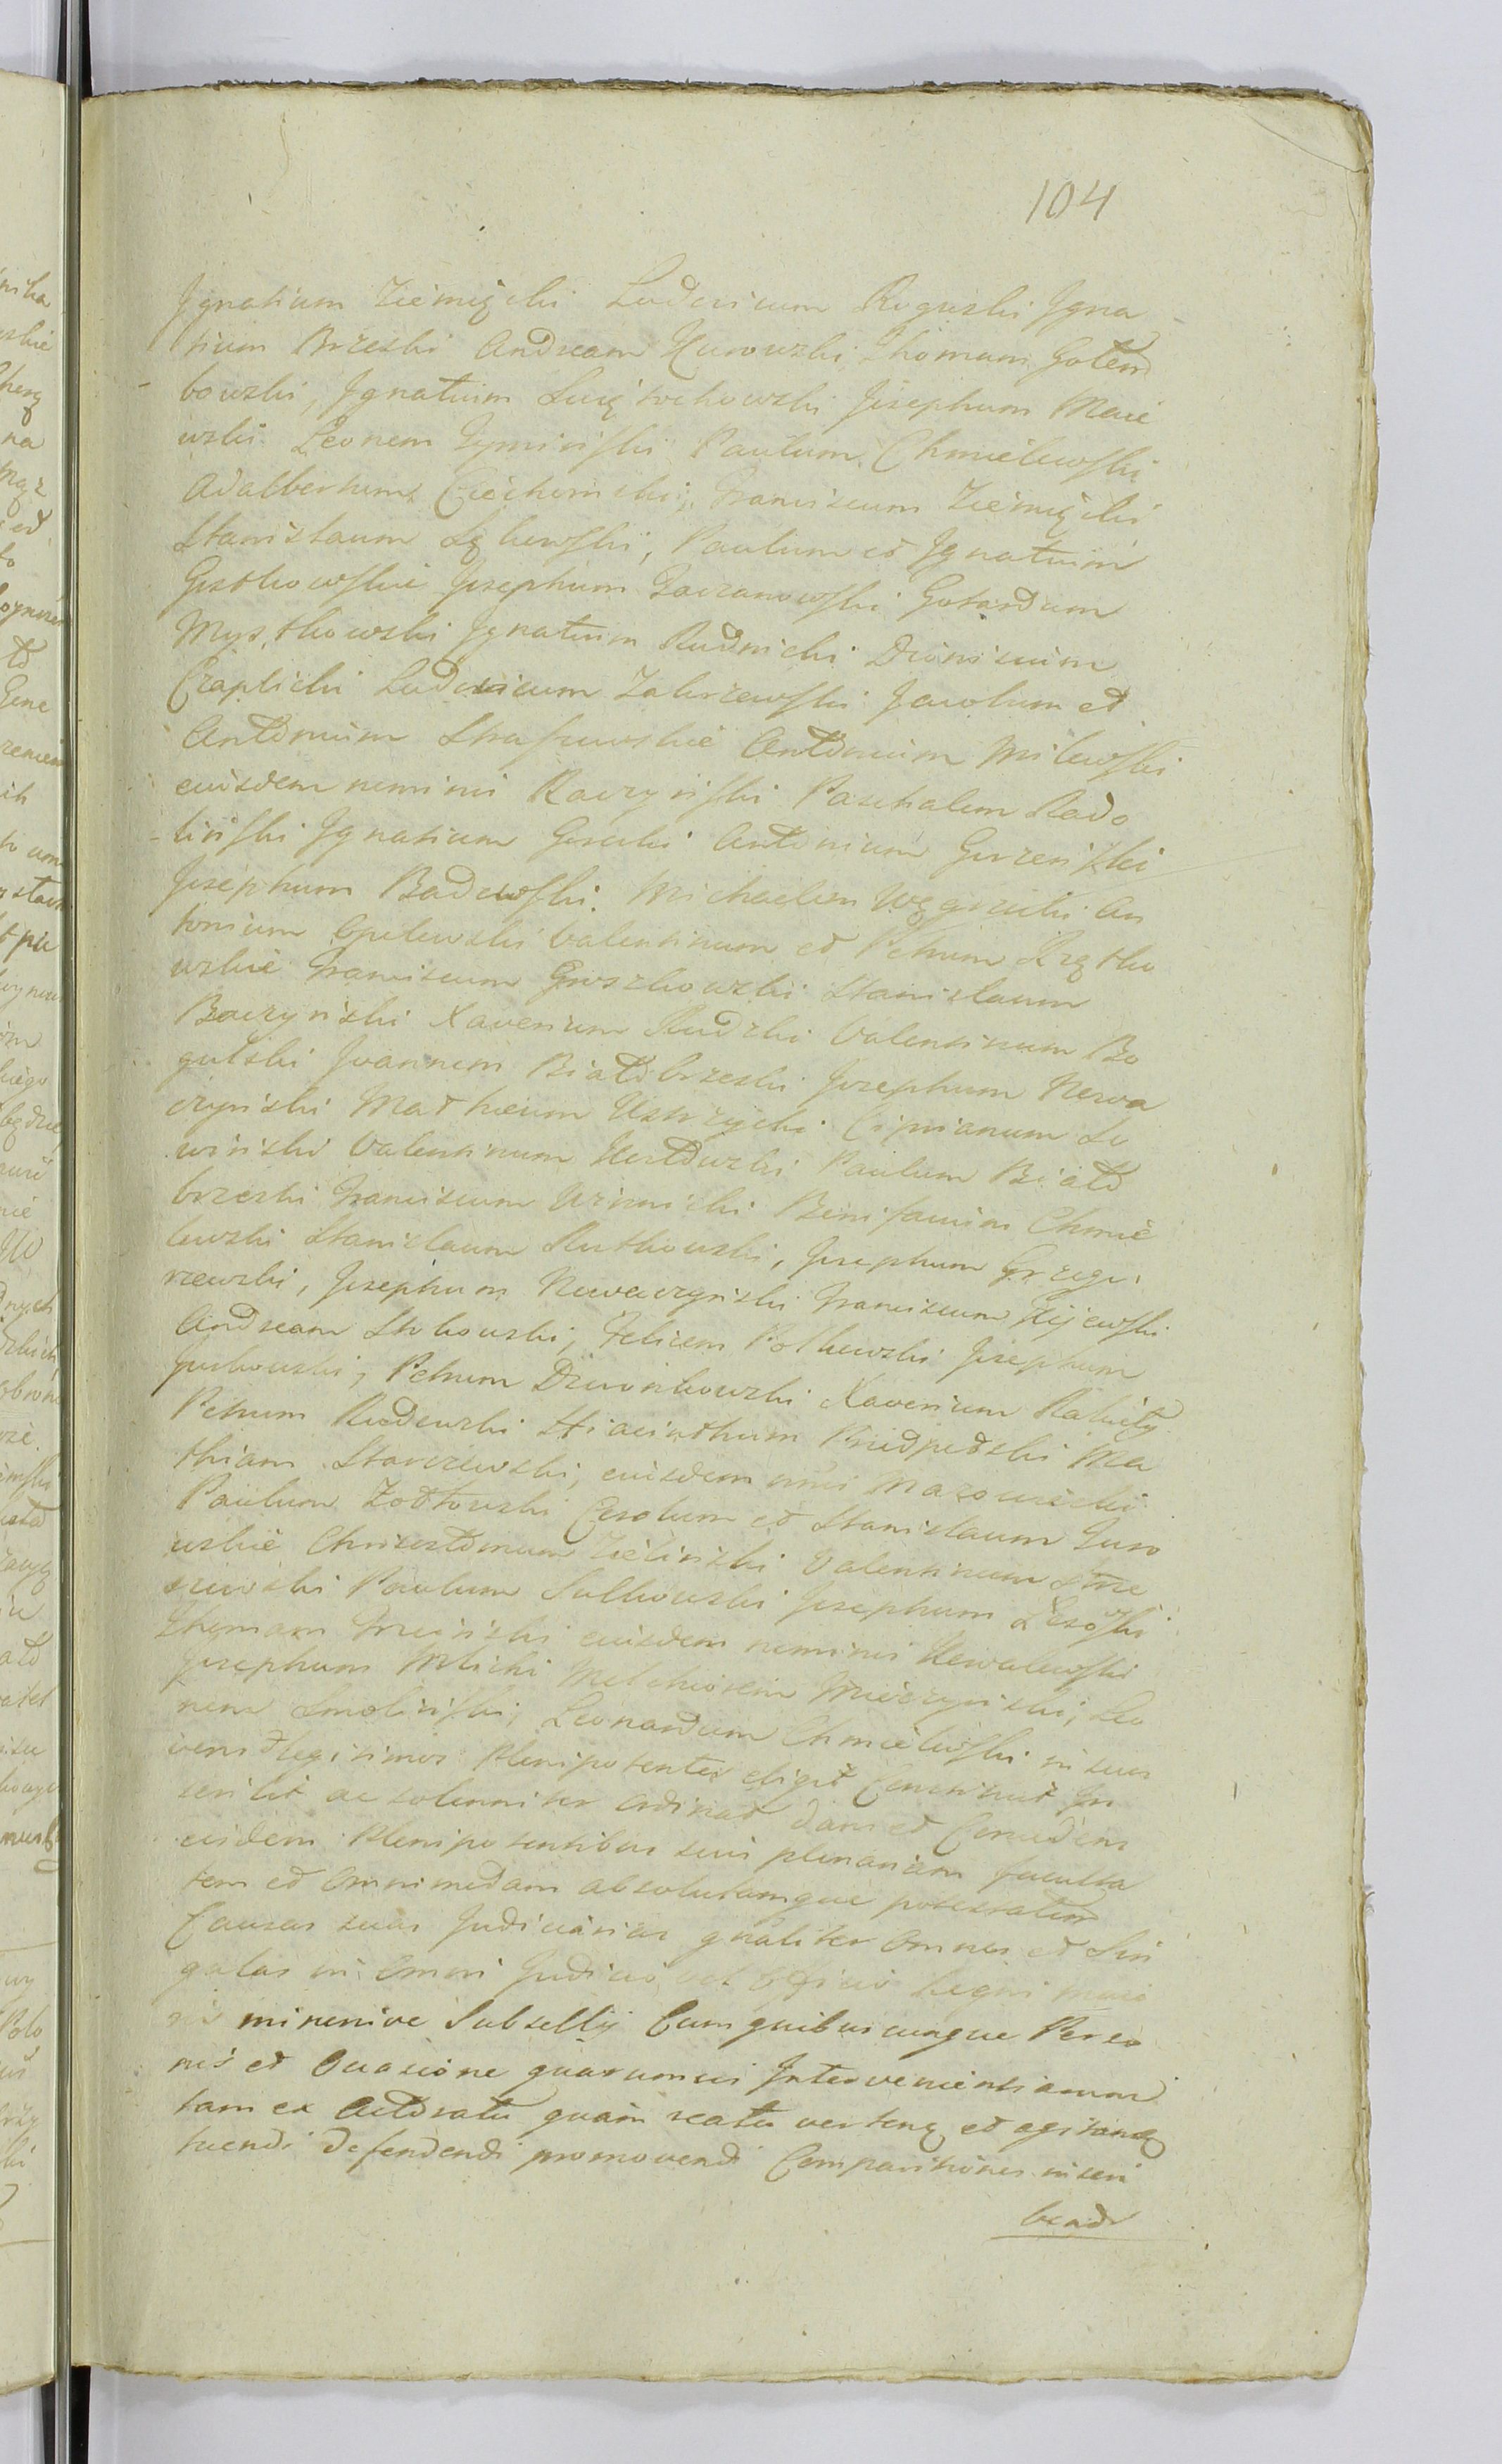 104
Ignatium Ziemięcki Ludovicum Roguski Igna
tium Brzeski Andream Kurowski, Thomam Gołem
bowski, Ignatium Swiętochowski Josephum Maie
wski Leonem Tyminski Paulum Chmielewski
Adalbertum Ciechomski, Franciscum Ziemięcki
Stanislaum Łękewski, Paulum et Ignatium
Gostkowskie Josephum Gavranowski Gotardum
Mystkowski Ignatium Rudnicki Dionisium
Czaplicki Ludovicum Zakrzewski Jacobum et
Antonium Strasewskie Antonium Milewski
eiusdem nominis Raczynski Paschalem Rado
linski Ignatium Gorecki Antonium Gorzenski
Josephum Badowski Michaelem Węgrzecki An
tonium Opelewski Valentinum et Petrum Krzętko
wskie Franciscum Groszkowski Stanislaum
Baczynski Xaverium Rudzki Valentinum Bo
gutski Joannem Białobrzeski Josephum Nowa
czynski Matheum Ustrzycki Ciprianum Le
winski Valentinum Kozłowski Paulum Biało
brzeski Franciscum Winnicki Bonifacium Chmie
lewski Stanislaum Rutkowski, Josephum Grzego
rzewski, Josephum Nowaczynski Franciscum Kijewski
Andream Stokowski, Felicem Rolkowski Josephum
Jurkowski, Petrum Dzwonkowski Xaverium Rakiety
Petrum Rudowski Hiacinthum Ma
thiam Starczewski, eiusdem nnis Mazowiecki
Paulum Zołtowski Carolum et Stanislaum Guro
wskie Chrisostomum Zielinski Valentinum Strze
szewski Paulum Sulkowski Josephum Lesowski
Thomam Trzcinski eiusdem nominis Kowalewski
Josephum Mlicki Melchiorem Mierzynski, Leo
nem Smolinski, Leonardum Chmielewski in suos
veros et legitimos Plenipotentes eligit Constituit In
scribit ac solenniter ordinat dans et Concedens
eisdem Plenipotentibus suis plenariam faculta
tem et Omnimodam absolutamque potestatem
Causas suas Judiciarias gnaliter Omnes et Sin
gulas in Omni Judicio vel Officio Regni Maio
ris minorive Subsellij Cum quibuscunque Perso
nis et Occasione quarumvis Intervenientiarum
tam ex Actoratu quam reatu verten et agitan
tuendi defendendi promovendi Comparitiones inscri
bendi